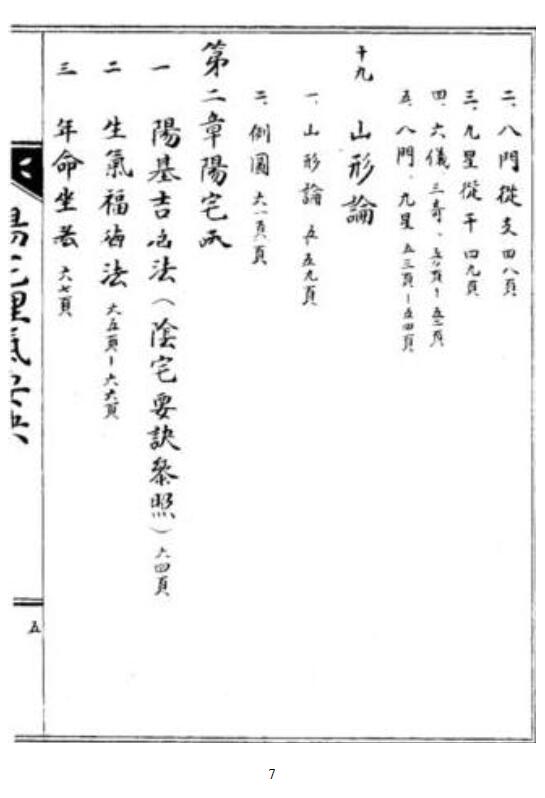 二、八門從支 四八頁
三、九星從干 四九頁
四、六儀三奇、五〇頁-五二頁
五、八門、九星 五三頁-五四頁
十九 山形論
一、山形論 五五九頁
二、例圖 六一頁頁
第二章陽宅
一 陽基吉凶法(陰宅要訣參照) 六四頁
二 生氣福德法 六五頁-六六頁
三 年命坐 六七頁
五
7